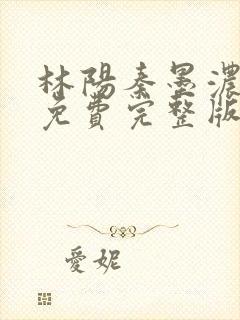 林陽秦墨濃
免費完整版
愛妮